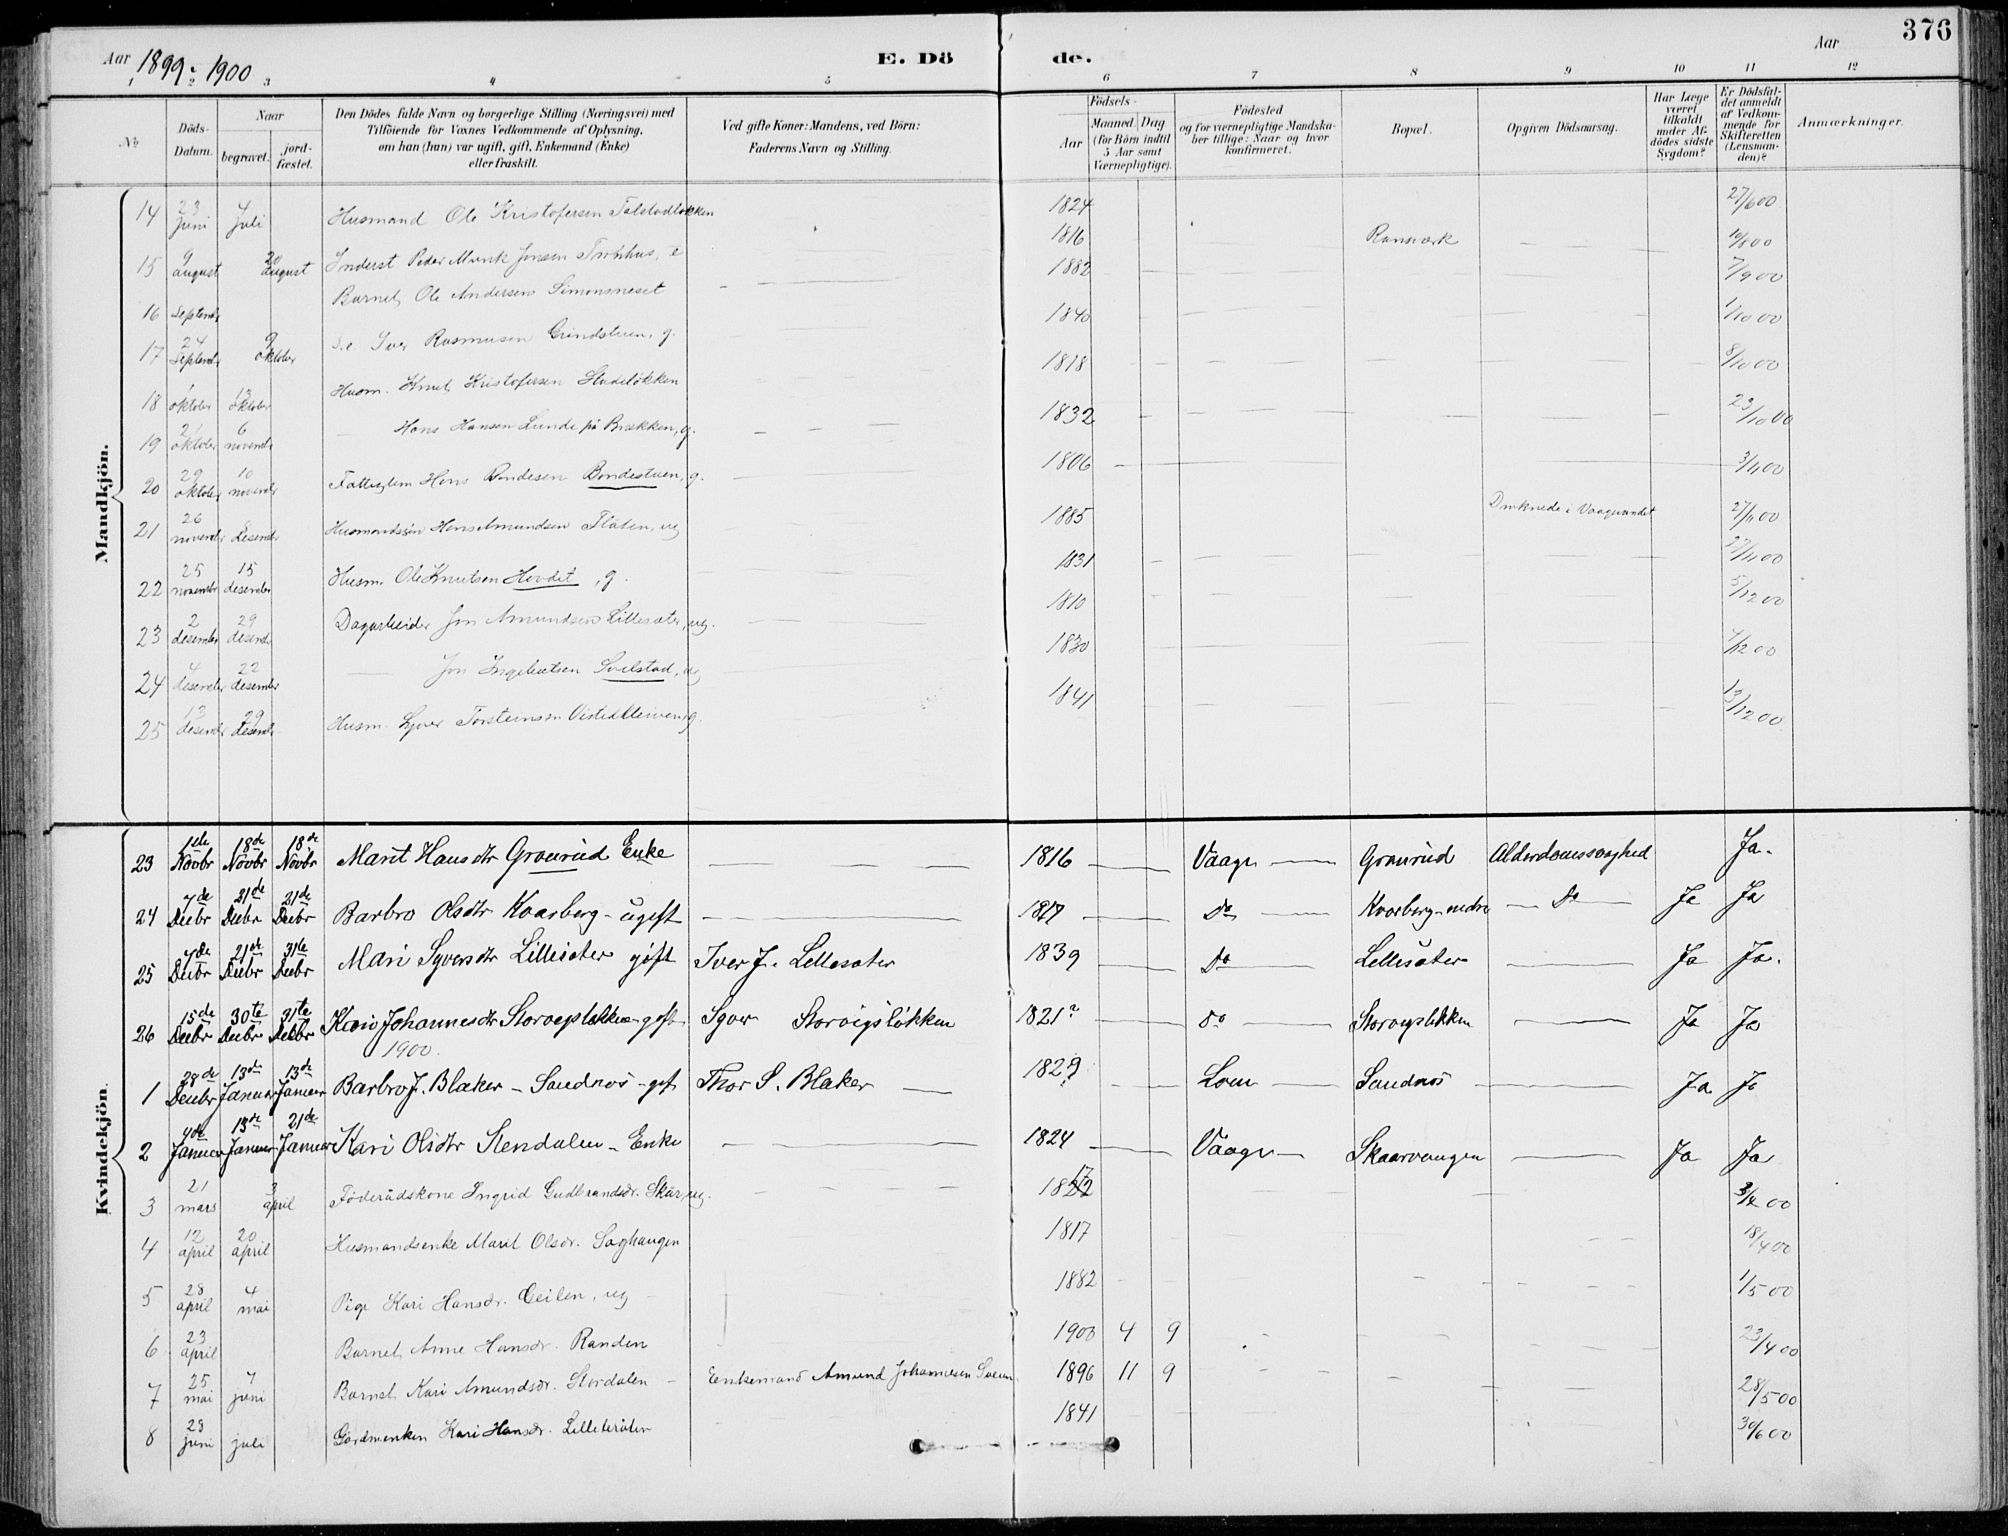 376
Aar 1899 - 1900
E. Döde.
Aar
1 2 3 4 5 6 7 8 9 10 11 12
No
Döds-Datum.
Naar
begravet.
jord-fæstet.
Den Dödes fulde Navn og borgerlige Stilling (Næringsvei) med
Tilföiende for Voxnes Vedkommende af Oplysning,
om han (hun) var ugift, gift, Enkemand (Enke)
eller fraskilt.
Ved gifte Koner: Mandens, ved Börn:
Faderens Navn og Stilling.
Födsels-
Aar
Maaned. Dag
(for Börn indtil
5 Aar samt
Værnepligtige).
Födested
og for værnepligtige Mandska-
ber tillige: Naar og hvor
konfirmeret.
Bopæl.
Opgiven Dödsaarsag.
Har Læge
været
tilkaldt
under Af-
dödes sidste
Sygdom?
Er Dödsfal-
det anmeldt
af Vedkom-
mende for
Skifteretten
(Lensman-
den)?
Anmærkninger.
Mandkjön.
14 23 juni 4 juli Husmand Ole Kristofersen 1824 27/6 00
15 9 august 20 august Inderst Peder Munk Jonsen 1816 10/8 00
16 September Barnet Ole Andersen Simonsneset 1882 7/9 00
17 24 September 9 oktober Iver Rasmusen Grindstuen, g. 1840 1/10 00
18 1 oktober 13 oktober Husm. Knut Kristofersen 1818 8/10 00
19 21 oktober 6 novembr — Hans Hansen Lunde på Brækken, g. 1832 23/10 00
20 29 oktober 10 november Fattiglem Hans Bondesen Bondestuen, g. 1806 3/11 00
21 26 november desember Husmandssön Hans Amundsen Flåten, ug 1885 Druknede i Vaagevandet 27/11 00
22 25 november 15 desember Husm. Ole Knutsen Hovdet, g. 1831 27/11 00
23 2 desember 29 desembr Dagarbeider Jon Amundsen Lillesæter, ug. 1810 5/12 00
24 4 desember 22 desember — Jon 1830 7/12 00
25 13 desembr 29 desembr Husm. Syver Torsteinsen 1841 13/12 00
Kvindekjön.
23 1de Novbr 18de Novbr 18de Novbr Marit Hansdtr Graurud Enke 1816 Vaage Graurud Alderdomssvaghed Ja.
24 7de Decbr 21de Decbr 21de Decbr Barbro Olsdtr Kvarberg - ugift 1817 Do Kvarberg nedre Do Ja Ja
25 7de Decbr 21de Decbr 31te Decbr Mari Syversdtr Lillesæter gift Iver J. Lillesæter 1839 Do Lillesæter Ja Ja.
26 15de Decbr 30te Decbr 31te Decbr Kari Johannesdtr Storvigsløkken - gift Syver Storvigsløkken 1821? do Storvigsløkken Ja Ja
1900.
1 28de Decbr 13de Januar 13de Januar Barbro J. Blaker - Sandnæs - gift Thor S. Blaker 1829? Lom Sandnæs Ja Ja
2 4de Januar 13de Januar 21de Januar Kari Olsdtr Stendalen - Enke 1824 Vaage Skaarvangen Ja Ja
3 21 mars 3 april Föderådskone Ingrid Gudbrandsdr. Skår, ug. 3/4 00
4 12 april 20 april Husmandsenke Marit Olsdr. Saghaugen 1817 18/4 00
5 28 april 4 mai Pige Kari Hansdr. Teilen, ug 1882 1/5 00
6 23 april Barnet Anne Hansdr. Randen 1900 4 9 23/4 00
7 25 mai 7 juni Barnet Kari Amundsdr. Stordalen Enkemand Amund Johannesen 1896 11 9 28/5 00
8 23 juni juli Gårdmenken Kari Hansdr. 1841 30/6 00